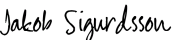 Jakob Sigurdsson